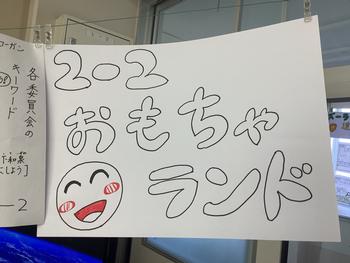 2-2
おもちゃ
ランド
各委員会の
キーワード